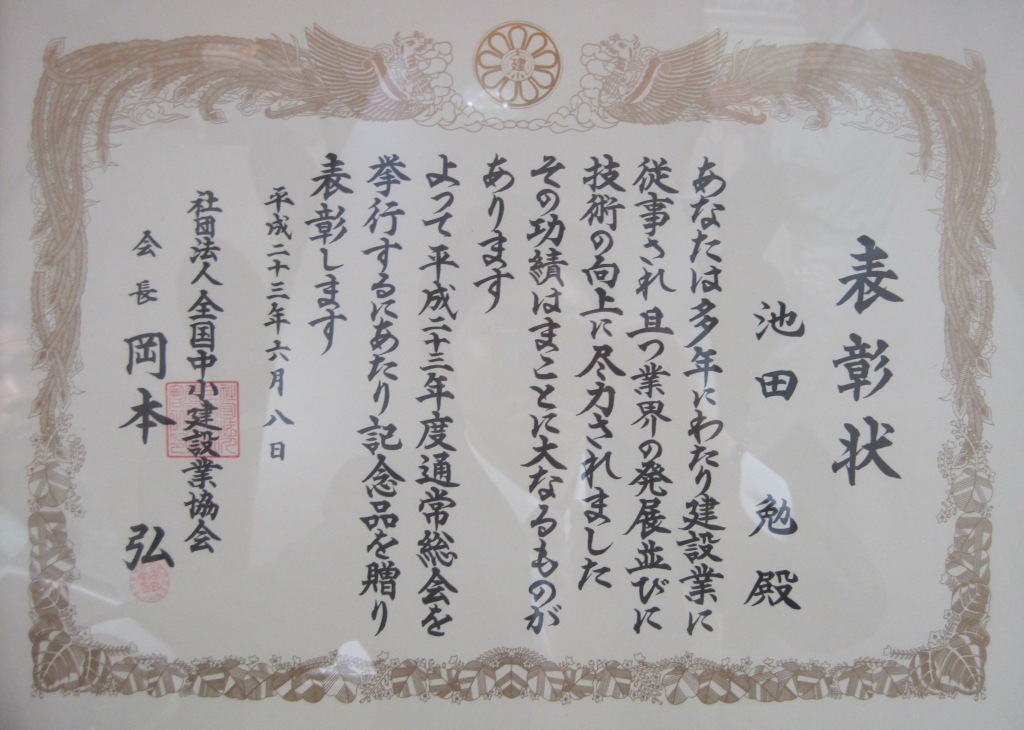 表彰状
池田勉殿
あなたは多年にわたり建設業に
従事され且つ業界の発展並びに
技術の向上に尽力されました
その功績はまことに大なるものが
あります
よって平成二十三年度通常総会を
挙行するにあたり記念品を贈り
表彰します
平成二十三年六月八日
社団法人全国中小建設業協会
会長 岡本 弘